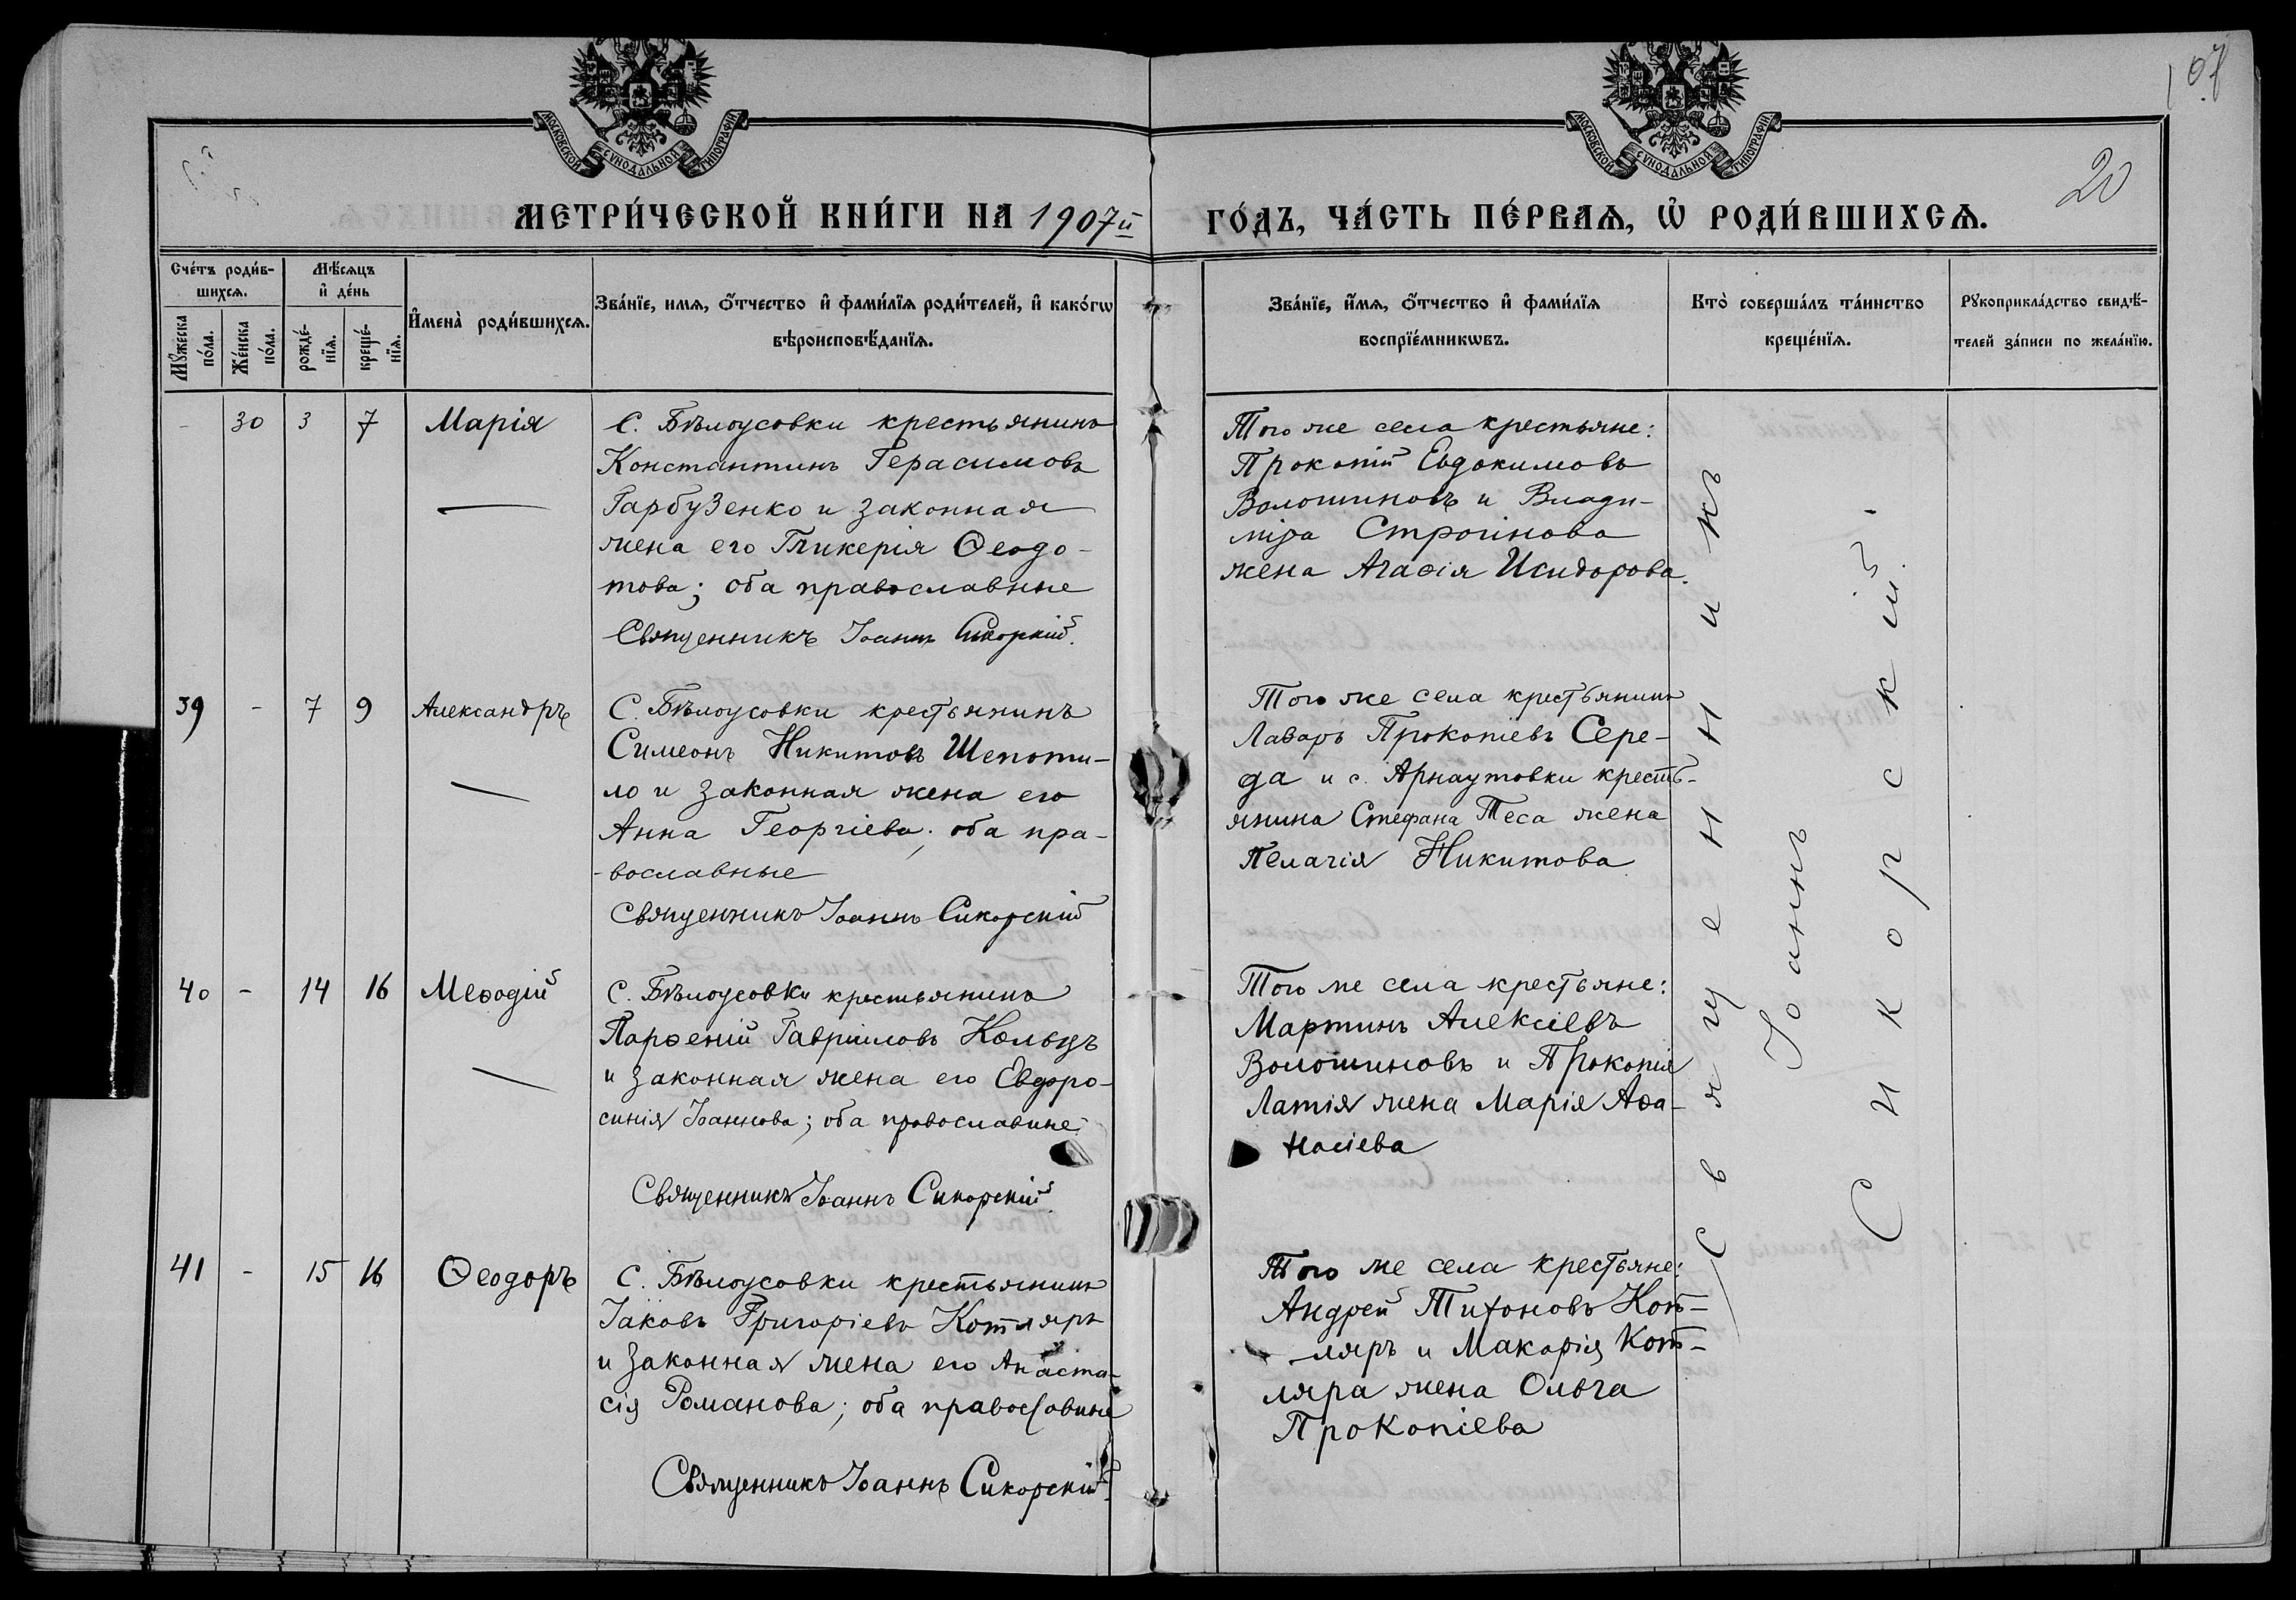 МОСКОВСКОЙ СѴНОДАЛЬНОЙ ТИПОГРАФІИ
МОСКОВСКОЙ СѴНОДАЛЬНОЙ ТИПОГРАФІИ
107
20
МЕТРИ́ЧЕСКОЙ КНИ́ГИ НА 1907й ГО́ДЪ, ЧА́СТЬ ПЕ́РВАѦ, Ѽ РОДИ́ВШИХСѦ.
Сче́тъ роди́в-
шихсѧ.
Мꙋ́жеска
по́ла.
Же́нска
по́ла.
Мѣ́сѧцъ
и҆ де́нь
рожде́-
нїѧ.
креще́-
нїѧ.
И҆мена̀ роди́вшихсѧ.
Зва́нїе, имѧ, ѻ҆́тчество и҆ фами́лїѧ роди́телей, и҆ како́гѡ
вѣроисповѣ́данїѧ.
Зва́нїе, и҆́мѧ, ѻ҆́тчество и҆ фами́лїѧ
воспрїе́мникѡвъ.
Кто̀ соверша́лъ та́инство
креще́нїѧ.
Рꙋкоприкла́дство свидѣ́-
телей за́писи по жела́нїю.
- 30 3 7 Марія
С. Бѣлоусовки крестьянинъ
Константинъ Герасимовъ
Гарбузенко и законная
жена его Гликерія Ѳеодо-
това; оба православные
Священникъ Іоаннъ Сикорскій.
Того же села крестьяне:
Прокопій Евдокимовъ
Волошиновъ и Влади-
міра Строинова
жена Агаѳія Исидорова.
39 - 7 9 Александръ
С. Бѣлоусовки крестьянинъ
Симеонъ Никитовъ Шепоти-
ло и законная жена его
Анна Георгіева; оба пра-
-вославные
Священникъ Іоаннъ Сикорскій
Того же села крестьянинъ
Лазарь Прокопіевъ Сере-
да и с. Арнаутовки кресть-
янина Стефана Теса жена
Пелагія Никитова
40 - 14 16 Меѳодій
С. Бѣлоусовки крестьянинъ
Парѳеній Гавріиловъ Кольцъ
и законная жена его Евфро-
синія Іоаннова; оба православные
Священникъ Іоаннъ Сикорскій.
Того же села крестьяне:
Мартинъ Алексіевъ
Волошиновъ и Прокопія
Латія жена Марія Аѳа-
насіева
41 - 15 16 Ѳеодоръ
С. Бѣлоусовки крестьянинъ
Іаковъ Григоріевъ Котляръ
и законная жена его Анаста-
сія Романова; оба православные
Священникъ Іоаннъ Сикорскій
Того же села крестьяне:
Андрей Тихоновъ Кот-
ляръ и Макарія Кот-
ляра жена Ольга
Прокопіева
Священникъ
Іоаннъ
Сикорскій.